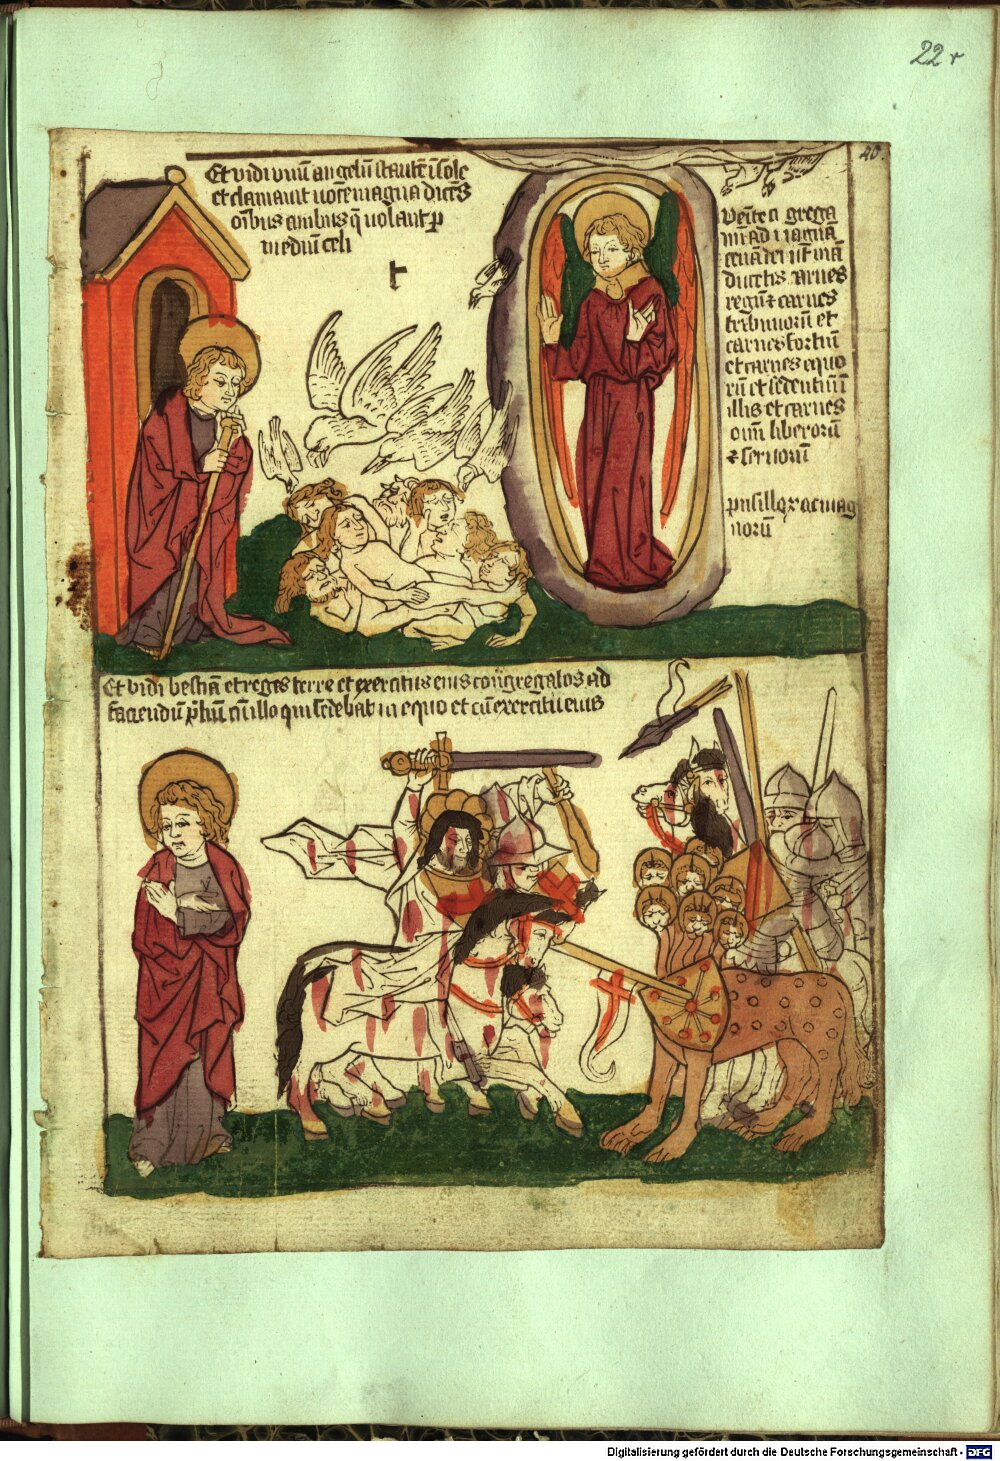 22 r
40.
Et vidi vnū angelū stantē ī sole
et clamavit voce magna dicēs
oībus avibus q̄ volant p̄
mediū celi
t
Venite ⁊ grega
ad magnā
cenā dei ut mā
ducetis carnes
regū ⁊ carnes
tribunorū et
carnes fortiū
et carnes equo
rū et sedentiū ī
illis et carnes
oīm liberorū
⁊ servorū
pusillor ac mag
norū
Et vidi bestiā et reges terre et exercitus eius congregatos ad
faciendū p̄liū cū illo qui sedebat in equo et cū exercitu eius
Digitalisierung gefördert durch die Deutsche Forschungsgemeinschaft - DFG